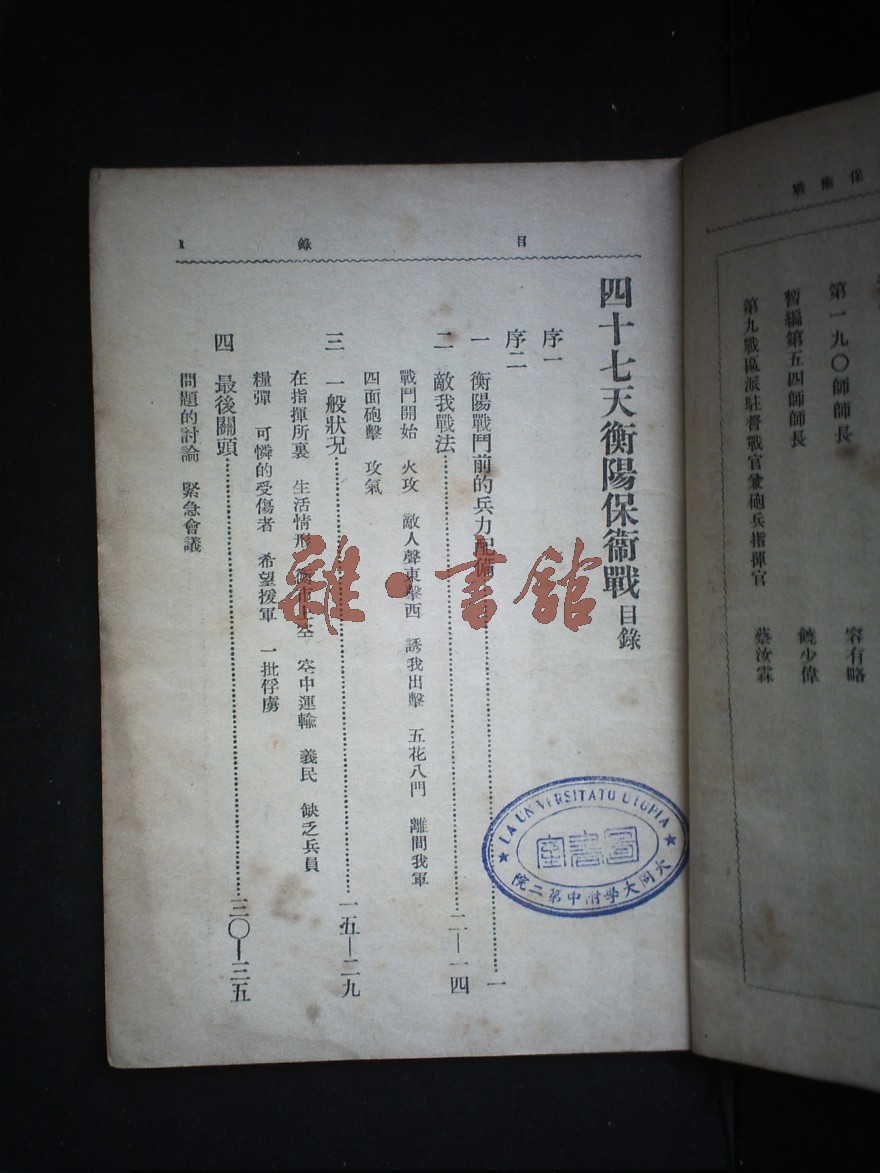 保衛戰
第一九〇師師長 容有略
暫編第五四師師長 饒少偉
第九戰區派駐督戰官兼砲兵指揮官 蔡汝霖
目錄 1
四十七天衡陽保衛戰 目錄
序一
序二
一 衡陽戰鬥前的兵力配備 一
二 敵我戰法 二—一四
戰鬥開始 火攻 敵人聲東擊西 誘我出擊 五花八門 離間我軍
四面砲擊 攻氣
三 一般狀況 一五—二九
在指揮所裏 生活情形 衡市上空 空中運輸 義民 缺乏兵員
糧彈 可憐的受傷者 希望援軍 一批俘虜
四 最後關頭 三〇—三五
問題的討論 緊急會議
雜·書館
LA UNIVERSITATO UTOPIA
圖書室
大同大學附中第二院